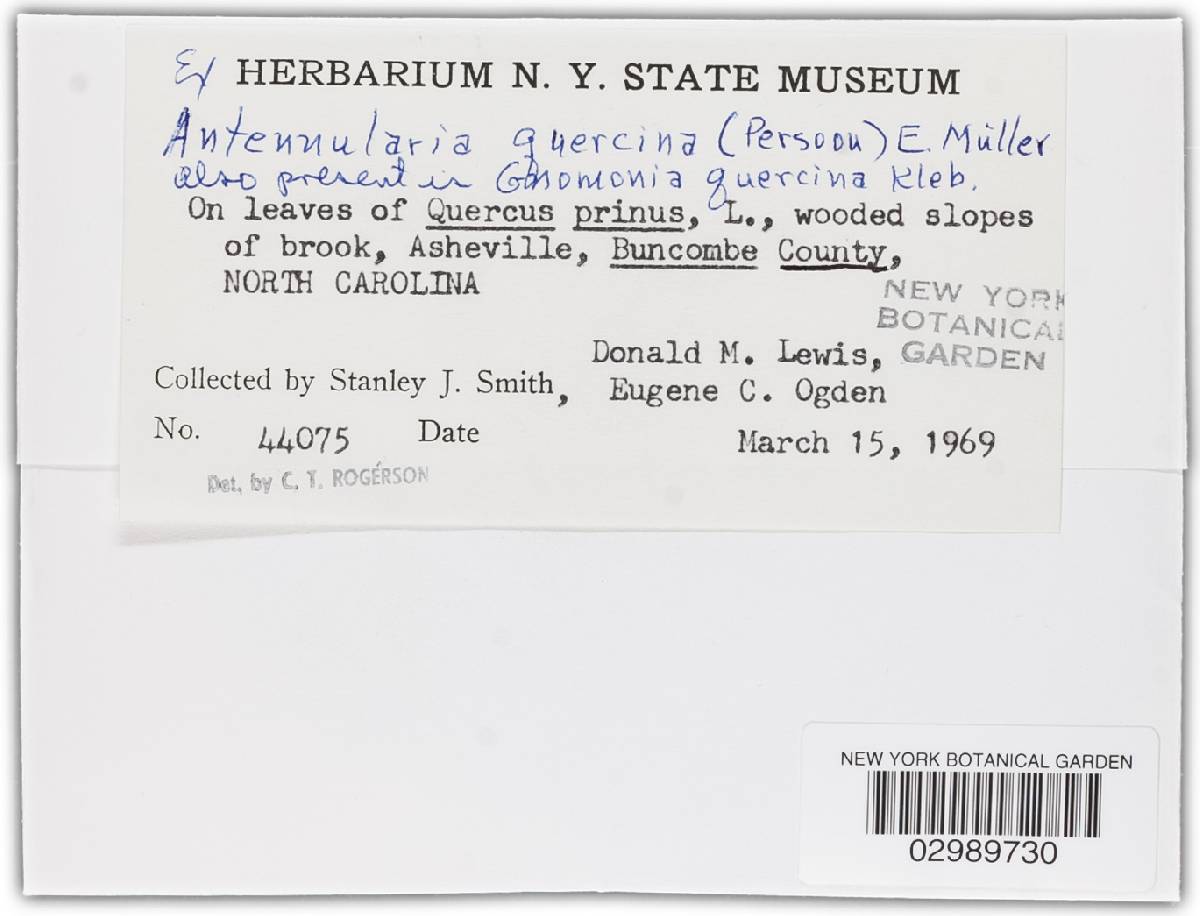 Ex HERBARIUM N. Y. STATE MUSEUM
Antennularia quercina (Persoon) E. Müller
also present is Gnomonia quercina Kleb.
On leaves of Quercus prinus, L., wooded slopes
of brook, Asheville, Buncombe County,
NORTH CAROLINA
NEW YORK
BOTANICAL
GARDEN
Donald M. Lewis,
Collected by Stanley J. Smith, Eugene C. Ogden
No. 44075 Date March 15, 1969
Det. by C. T. ROGERSON
NEW YORK BOTANICAL GARDEN
02989730